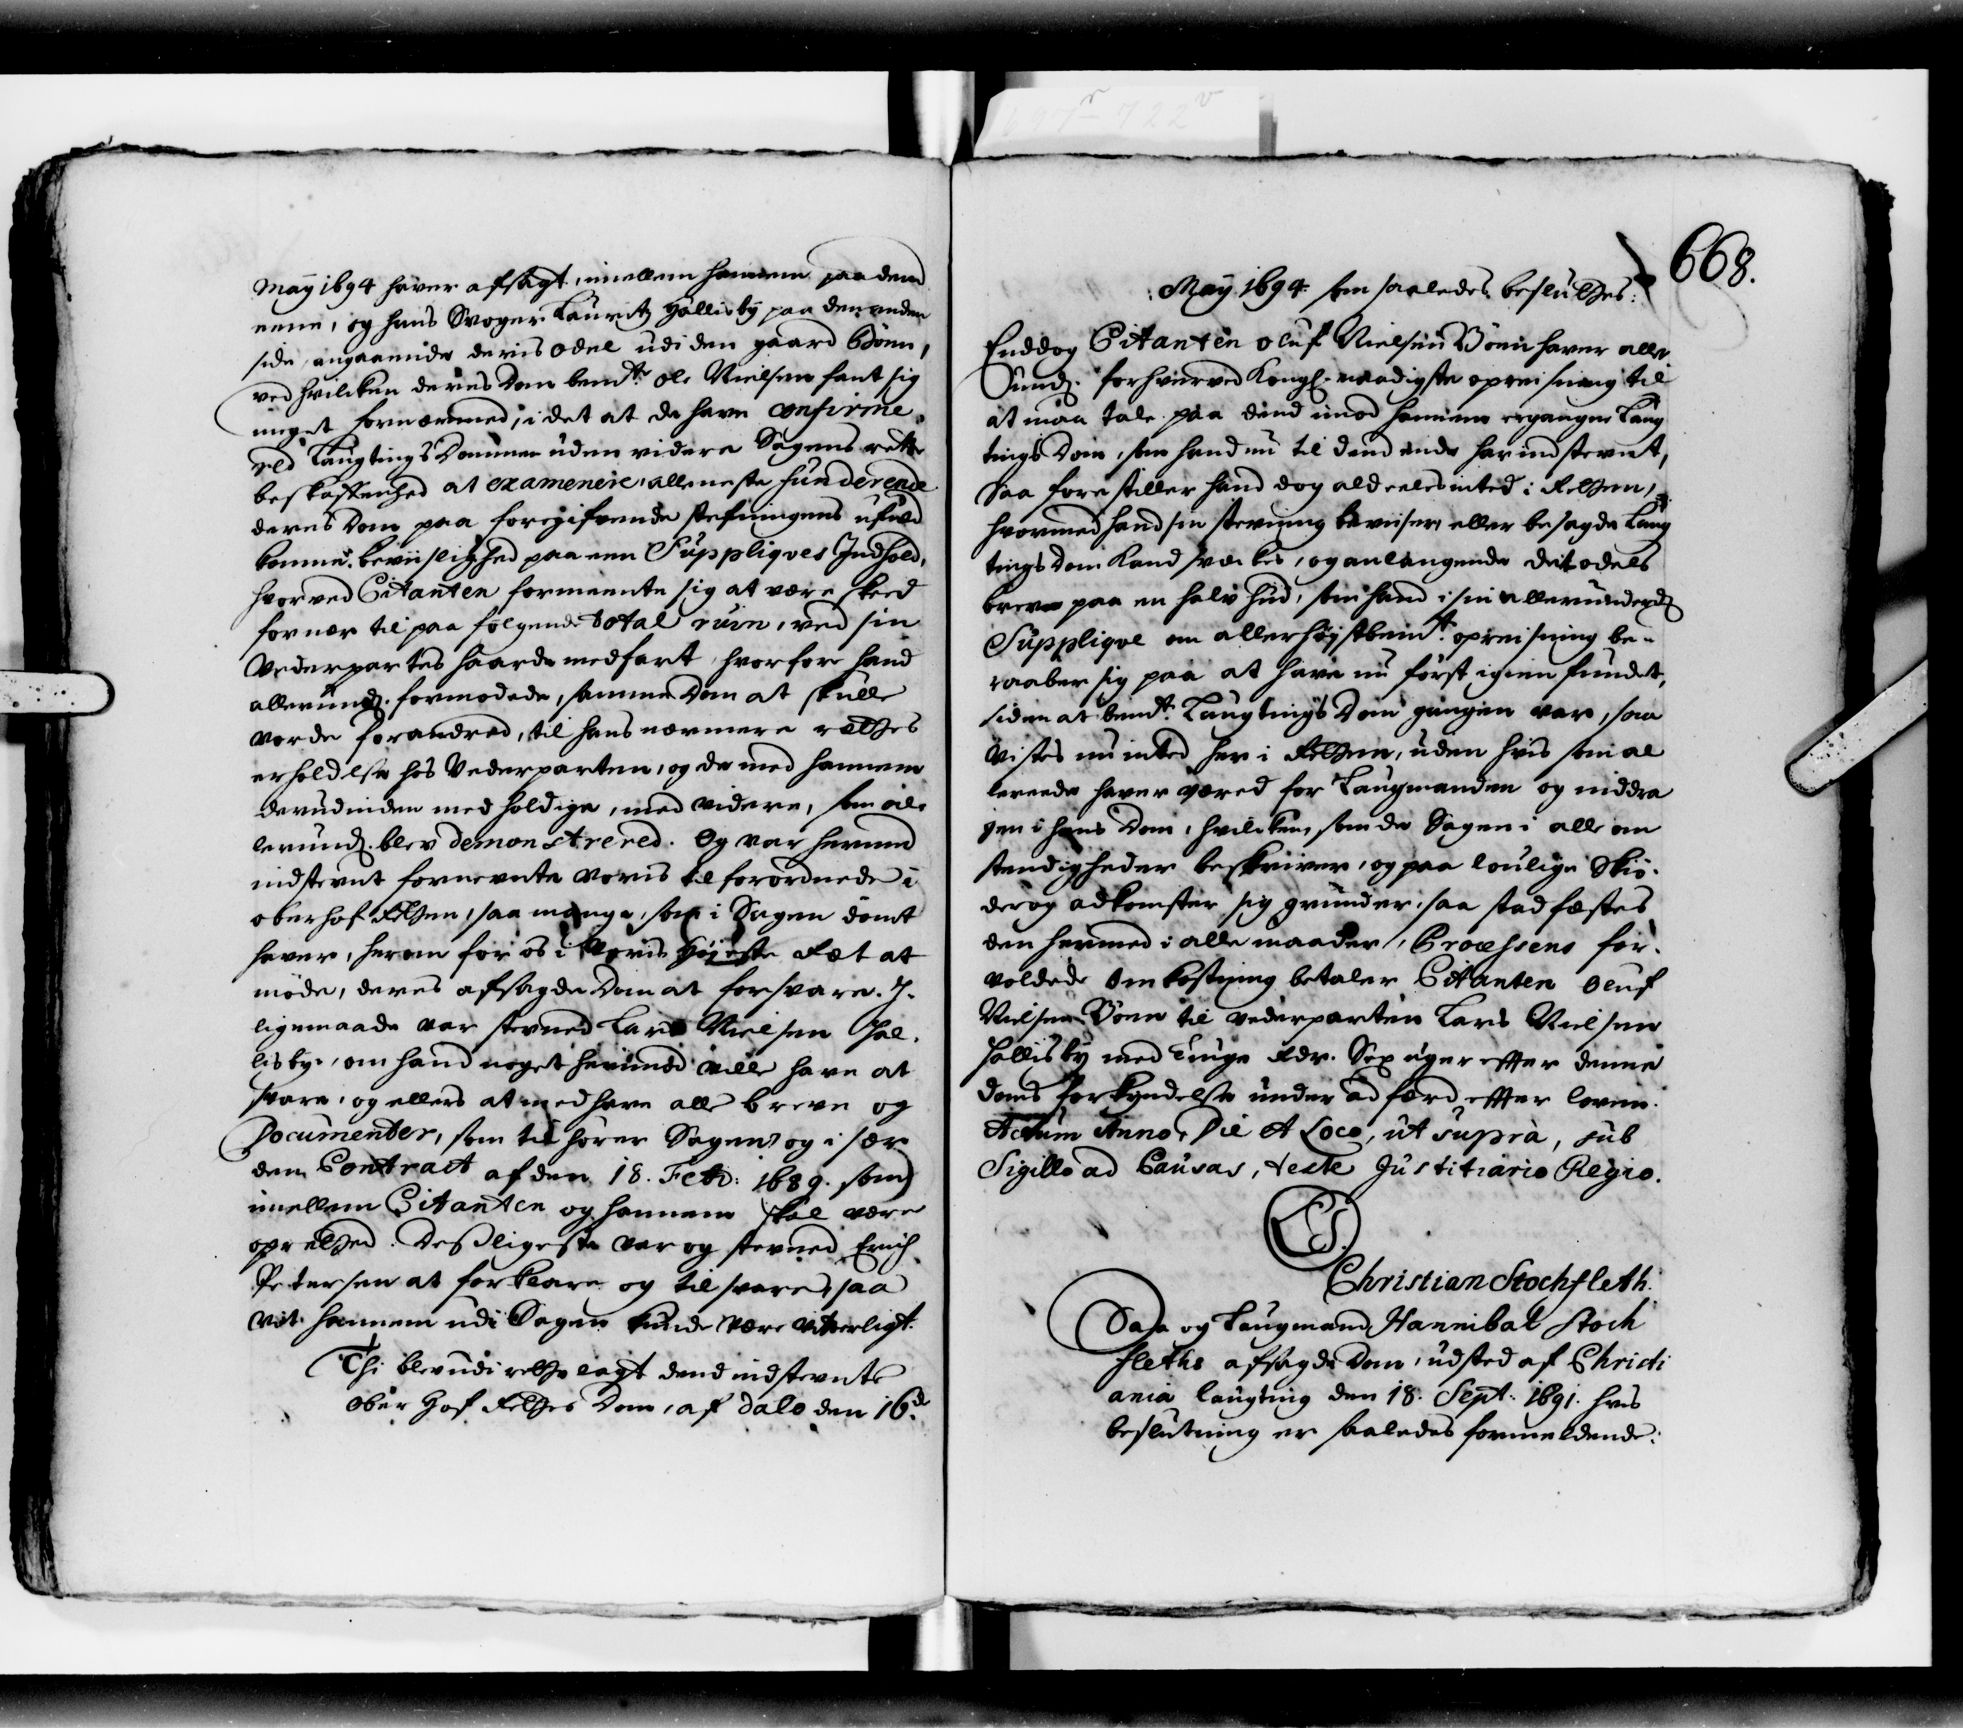 May 1694 haver afsagt, imellem hannem paa dend
eene, og hans Svoger Lauritz Hallisby paa den anden
side, angaaende deris odel udi den gaard Bøen,
ved hvilcken deres Dom bemte Ole Nielsen fant sig
meget fornermed, i det at de have confirme-
red Laugtings Dommen uden videre Sagens rette
beskaffenhed at examenere, alleneste funderende
deres Dom paa foregifvende stefningens ufuld
komme beviislighed paa een Suppliqves Indhold,
hvorved Citanten formeente sig at være skeed
for nær til paa følgende total ruin, ved sin
Vederpartes haarde medfart, hvorfore hand
allerund. formodede, samme Dom at skulle
vorde forandred, til hans nermere retthes
erholdelse hos Vederparten, og de med hannem
derudinden medholdige, med videre, som al-
lerund. blev demonstrered. Og var hermed
indstevnt fornevnte voris tilforordnede i
oberhof Retten, saa mange, som i Sagen dømt
haver, herom for os i Voris Højeste Ret at
møde, deres afsagde Dom at forsvare. I-
ligemaade var stevned Lars Nielsen Hal-
lisby, om hand noget hermed ville have at
svare, og ellers at medhave alle breve og
Documenter, som til hører Sagen, og i sær
den Contract af den 18. Febr: 1689. som
imellem Citanten og hannem skal være
oprettned. Desligeste var og stevned Erich
Petersen at forklare og tilsvare, saa
vit hannem udi Sagen kunde være vitterligt.
Thi blev udi rette lagt dend indstevnte
Ober Hof Rettes Dom, af dato den 16de
697r - 722v
668.
May 1694. som saaledes besluttes:
Enddog Citanten Oluf Nielsen Bøen haver aller
und. forhverved Kongl. naadigste opreisning til
at maa tale paa dend imod hannem ergangne Laug
tings Dom, som hand nu til dend ende har indstevnt,
Saa forestiller hand dog aldeeles inted i Retten,
hvormed hand sin stevning beviser, eller besagde Laug
tings Dom kand svækkes, og anlangende det odels
brev paa en halv hud, som hand i sin allerunderd
Suppliqve om allerhøystbemt. opreisning be-
raaber sig paa at have nu først igien fundet,
siden at bemt. Laugtings Dom gangen var, saa
vistes nu inted her i Retten, uden hvis som al
lereede haver været for Laugmanden og inddra
gen i hans Dom, hvilcken, som de Sagen i alle om
stendigheder beskriver, og paa loulige Skiø-
der og adkomster sig grunder, saa stadfæstes
den hermed i alle maader, Processens for-
voldede Omkostning betaler Citanten Oluf
Nielsen Bøen til vederparten Lars Nielsen
Hallisby med Tiuge Rdr. Sex uger effter denne
doms forkyndelse under adfærd effter loven.
Actum Anno, Die et Loco, ut supra, sub
Sigillo ad Causas, teste Justitiario Regio.
LS.
Christian Stochfleth.
Saa og Laugmand Hannibal Stoch
fleths afsagde Dom, udsted af Christi
ania laugting den 18. Sept: 1691. hvis
beslutning er saaledes formeldende: